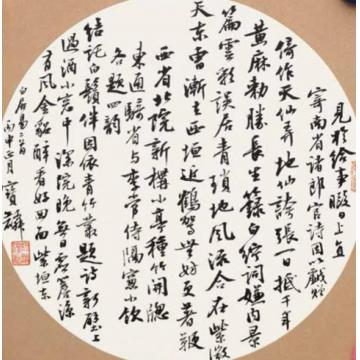 見於給事暇日上直
寄南省諸郎官詩因以戲贈
倚作天仙弄地仙誇張一日抵千年
黄麻勅勝長生籙白紵詞嫌内景
篇雲彩誤居青瑣地風流合在紫微
天東曹漸去西垣近鶴駕無妨更著鞭
西省北院新搆小亭種竹開牕
東通騎省與李常侍隔窗小飲
各題四韵
結託白鬚伴因依青竹叢題詩新壁上
過酒小窓中深院晚無日虚簷凉
有風金貂醉看好回首紫垣東
白居易二首
丙申正月